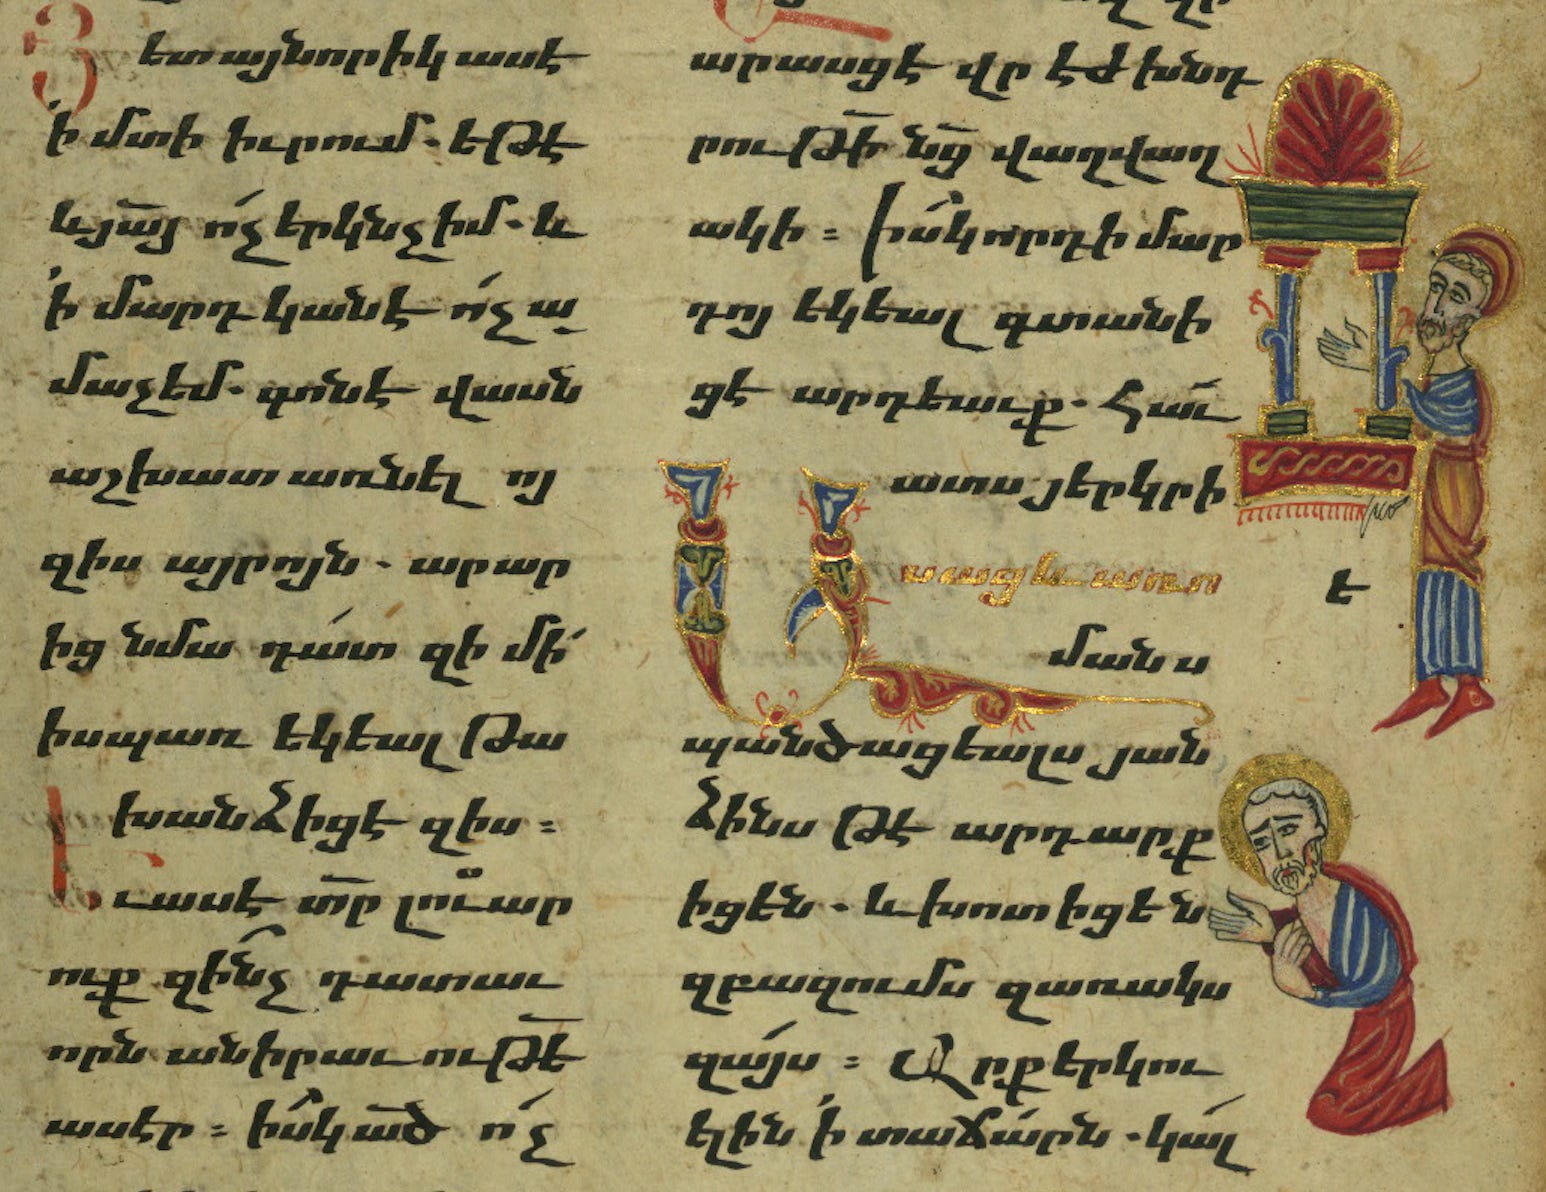 Յետ այնորիկ ասէ
ի մտի իւրում. եթէ
և յայ ոչ երկնչիմ. և
ի մարդկանէ ոչ ա
մաչեմ. գոնէ վասն
աշխատ առնելոյ
զիս այրոյն. արար
ից նմա դատ զի մի
իսպառ եկեալ թա
խանձիցէ զիս ։
Եւ ասէ տր լուար
ուք զինչ դատաւ
որն անիրաւութե
ասէր ։ իսկ ած ոչ
արասցէ վրէժխնդ
րութի նց վաղվաղ
ակի ։ Իսկ որդի մար
դոյ եկեալ գտանի
ցէ արդեաւք. Հաւ
ատս յերկրի
Ասաց և առ ո
է
մանս
պանծացեալս յան
ձինս թէ արդարք
իցեն. և խոտիցեն
զբազումս զառակս
զայս ։ Արք երկու
ելին ի տաճարն. կալ